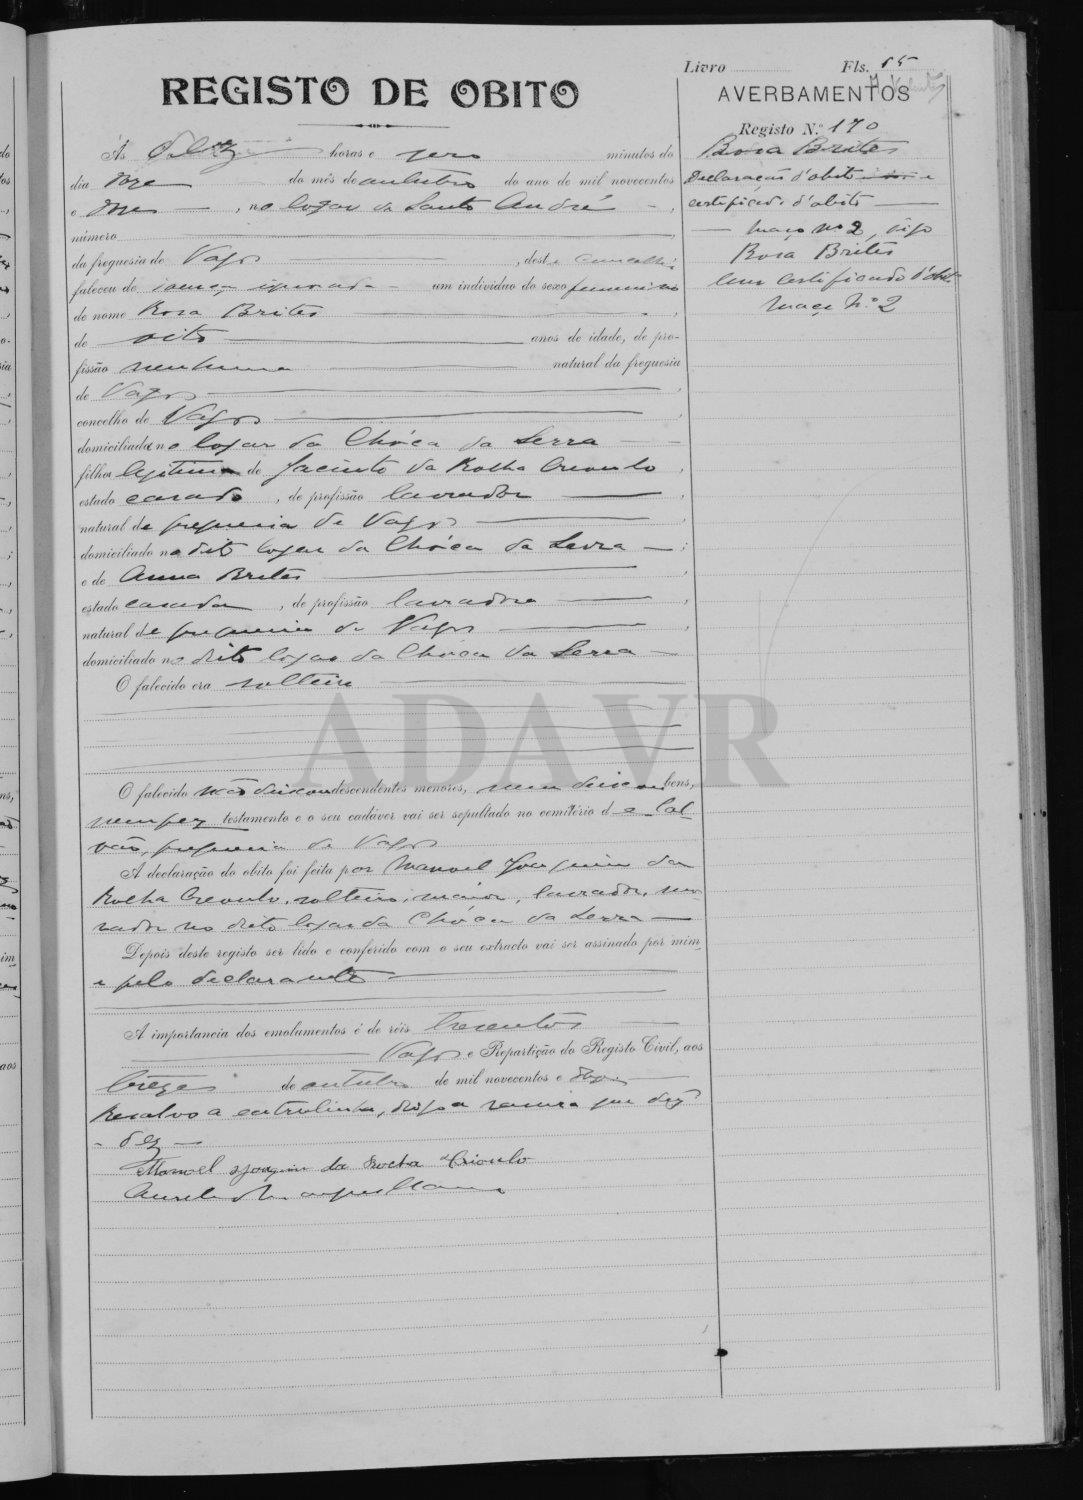 Livro Fls. 85
REGISTO DE OBITO
AVERBAMENTOS
Registo N.º 170
Ás dez horas e zero minutos do
dia onze do mês de outubro do ano de mil novecentos
e onze, no logar de Santo André,
número
da freguesia de Vagos, deste concelho
faleceu de doença ignorada um individuo do sexo feminino
de nome Rosa Brites,
de oito anos de idade, de pro-
fissão nenhuma natural da freguesia
de Vagos,
concelho de Vagos,
domiciliada no logar da Chóca da Serra
filha legitima de Jacinto da Rocha Creoulo,
estado casado, de profissão lavrador,
natural da freguesia de Vagos,
domiciliado no dito logar da Chóca da Serra;
e de Anna Brites,
estado casada, de profissão lavradora,
natural da freguesia de Vagos,
domiciliado no dito logar da Chóca da Serra
O falecido era solteira
O falecido não deixou descendentes menores, nem deixou bens,
nem fez testamento e o seu cadáver vai ser sepultado no cemitério de Cal-
vão, freguesia de Vagos
A declaração do obito foi feita por Manoel Joaquim da
Rocha Creoulo, solteiro, maior, lavrador, mo-
rador no dito logar da Chóca da Serra
Depois deste registo ser lido e conferido com o seu extracto vai ser assinado por mim
e pelo declarante
A importancia dos emolumentos é de réis trezentos
Vagos e Repartição do Registo Civil, aos
treze de outubro de mil novecentos e onze
Resalvo a entrelinha, digo a rasura que diz
- dez -
Manoel Joaquim da Rocha Crioulo
Rosa Brites
Declaração d'obito e
certificado d'obito
maço nº 2, digo
Rosa Brites
Um certificado d'obito
Maço N.º 2
ADAVR